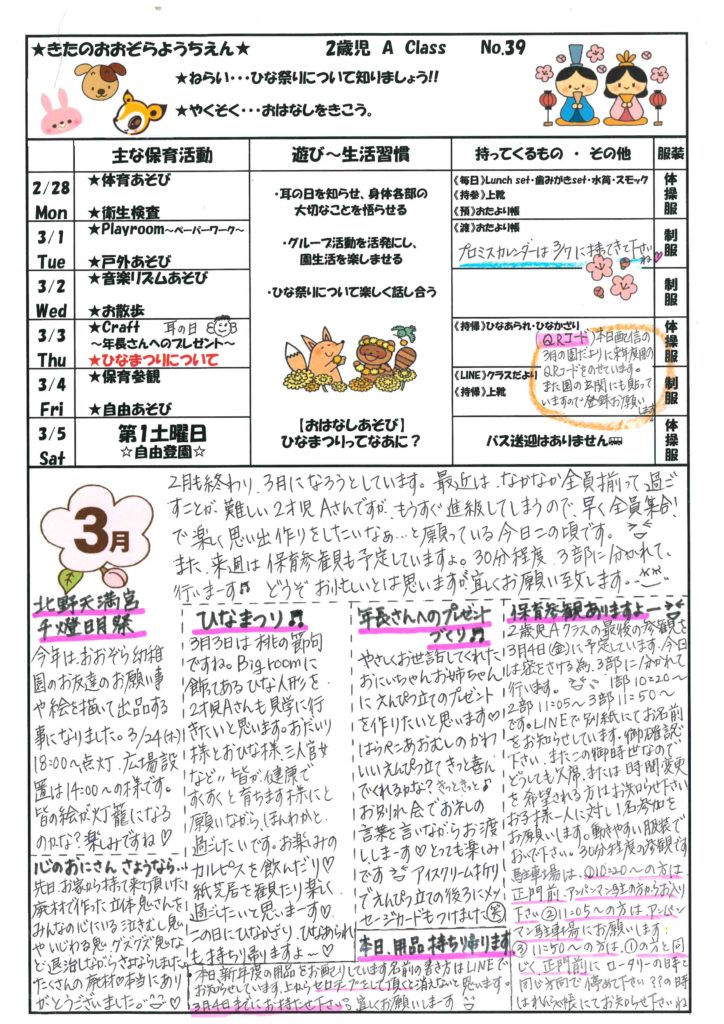 ★きたのおおぞらようちえん★ 2歳児 A Class No.39
★ねらい・・・ひな祭りについて知りましょう!!
★やくそく・・・おはなしをきこう。
主な保育活動 遊び～生活習慣 持ってくるもの ・ その他 服装
2/28 Mon
★体育あそび
★衛生検査
《毎日》Lunch set・歯みがきセット・水筒・スモック
《持参》上靴
《預》おたより帳
体操服
3/1 Tue
★Playroom～ペーパーワーク～
★戸外あそび
《渡》おたより帳
プロミスカレンダーは 3/7 に持ってきて下さいね♡
制服
3/2 Wed
★音楽リズムあそび
★お散歩
制服
3/3 Thu
★Craft 耳の日
～年長さんへのプレゼント～
★ひなまつりについて
《持帰》ひなあられ・ひなかざり
体操服
3/4 Fri
★保育参観
★自由あそび
《LINE》クラスだより
《持帰》上靴
制服
3/5 Sat
第1土曜日
☆自由登園☆
バス送迎はありません
体操服
・耳の日を知らせ、身体各部の
大切なことを悟らせる
・グループ活動を活発にし、
園生活を楽しませる
・ひな祭りについて楽しく話し合う
【おはなしあそび】
ひなまつりってなあに？
QRコード 本日配信の
3月の園だよりに来年度用の
QRコードをのせています。
また園の玄関にも貼って
いますので登録お願い
します
3月
2月も終わり、3月になろうとしています。最近は、なかなか全員揃って過ご
すことが、難しい2才児Aさんですが、もうすぐ進級してしまうので、早く全員集合!
で楽しく思い出作りをしたいなぁ…と願っている今日この頃です。
また、来週は保育参観も予定していますよ。30分程度、3部に分かれて、
行いまーす♫ どうぞお忙しいとは思いますが宜しくお願い致します。
北野天満宮
千燈明祭
今年は、おおぞら幼稚
園のお友達のお願い事
や絵を描いて出品する
事になりました。3/24(木)
18:00～点灯 広場設
置は14:00～の様です。
皆の絵が灯籠になる
のかな？楽しみですね♡
心のおにさん さようなら…
先日、お家から持って来て頂いた
廃材で作った立体鬼さんを
みんなの心にいる泣きむし鬼
やいじわる鬼、グズグズ鬼な
ど退治しながらさよならしました。
たくさんの廃材♡本当にあり
がとうございました。
ひなまつり♫
3月3日は桃の節句
ですね。Big roomに
飾ってあるひな人形を
2才児Aさんも見学に行
きたいと思います。おだいり
様とおひな様、三人官女
など… 皆が健康で
すくすくと育ちます様にと
願いながら、ほんわかと
過したいです。お楽しみの
カルピスを飲んだり♡
紙芝居を観たり楽しく
過ごしたいと思いまーす♡
この日にひなかざり、ひなあられ
も持ち帰りますよ～♡
年長さんへのプレゼント
づくり♫
やさしくお世話してくれた
おにいちゃんお姉ちゃん
にえんぴつ立てのプレゼント
を作りたいと思います♡
はらぺこあおむしのかわ
いいえんぴつ立てきっと喜ん
でくれるかな？きっときっと♪
お別れ会でお礼の
言葉を言いながらお渡
ししまーす♡とっても楽しみ
です アイスクリーム折り
でえんぴつ立ての後ろにメッ
セージカードもつけました 笑
本日、用品 持ち帰ります
本日、新年度の用品をお配りしています。名前の書き方はLINEで
お知らせしています。上からセロテープをして頂くと消えないと思います。
3月4日までにお持たせ下さい。宜しくお願いします
保育参観ありますよー
2歳児Aクラスの最後の参観を
3月4日(金)に予定しています。今日
は密をさける為、3部に分かれて
行います。 1部 10:20～
2部 11:05～ 3部 11:50～
です。LINEで別紙にてお名前
をお知らせしています。御確認
下さい。またこの御時世なので
どうしても欠席、または時間変更
を希望される方はお知らせ下さい
お子様一人に対し1名参加を
お願いします。動きやすい服装で
おいで下さい。30分程度の参観です
駐車場は、①10:20～の方は、
正門前、アンパンマン駐の方からお入り
下さい ②11:05～の方は、アンパン
マン駐車場にお願いします
③11:50～の方は、①の方と同
じく正門前にロータリーの時と
同じ方向で停めて下さい ??の時
はれんらく帳にてお知らせ下さいね